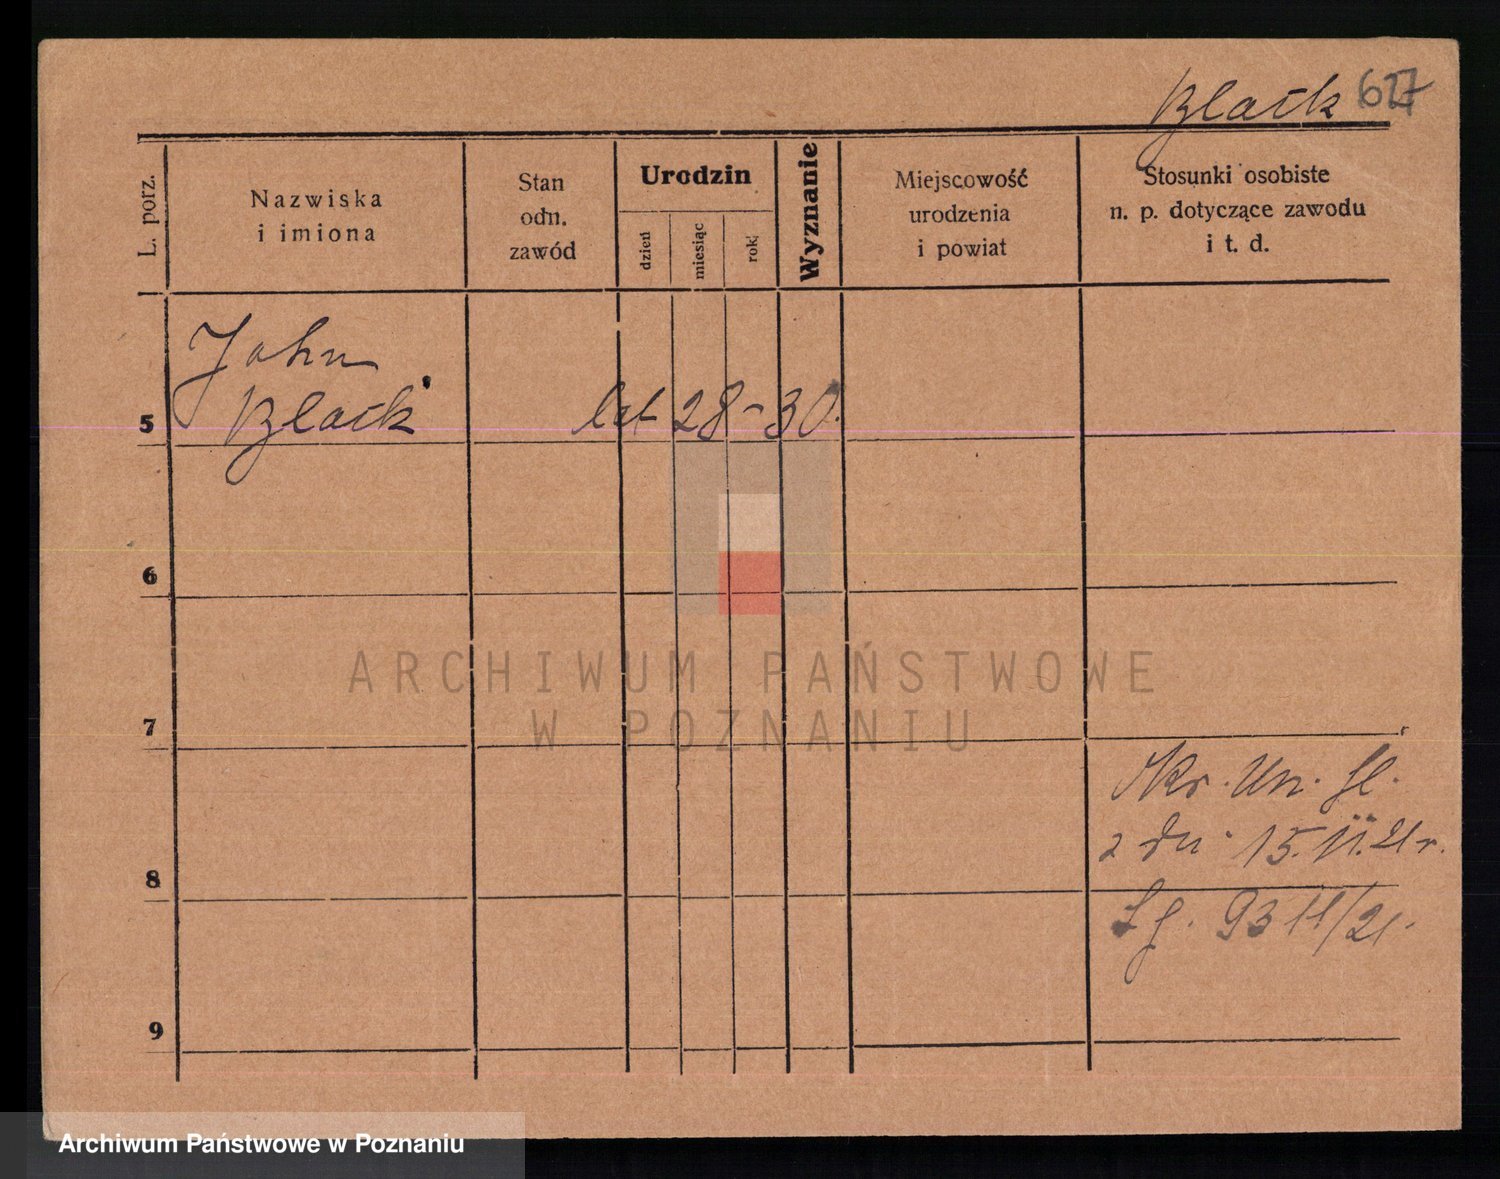 Black 627
L. porz.
Nazwiska
i imiona
Stan
odn.
zawód
Urodzin
dzień
miesiąc
rok
Wyznanie
Miejscowość
urodzenia
i powiat
Stosunki osobiste
n. p. dotyczące zawodu
i t. d.
John
5 Black lat 28-30.
6
ARCHIWUM PAŃSTWOWE
W POZNANIU
7
z dn. 15. 11. 21 r.
8
93 11/21.
9
Archiwum Państwowe w Poznaniu